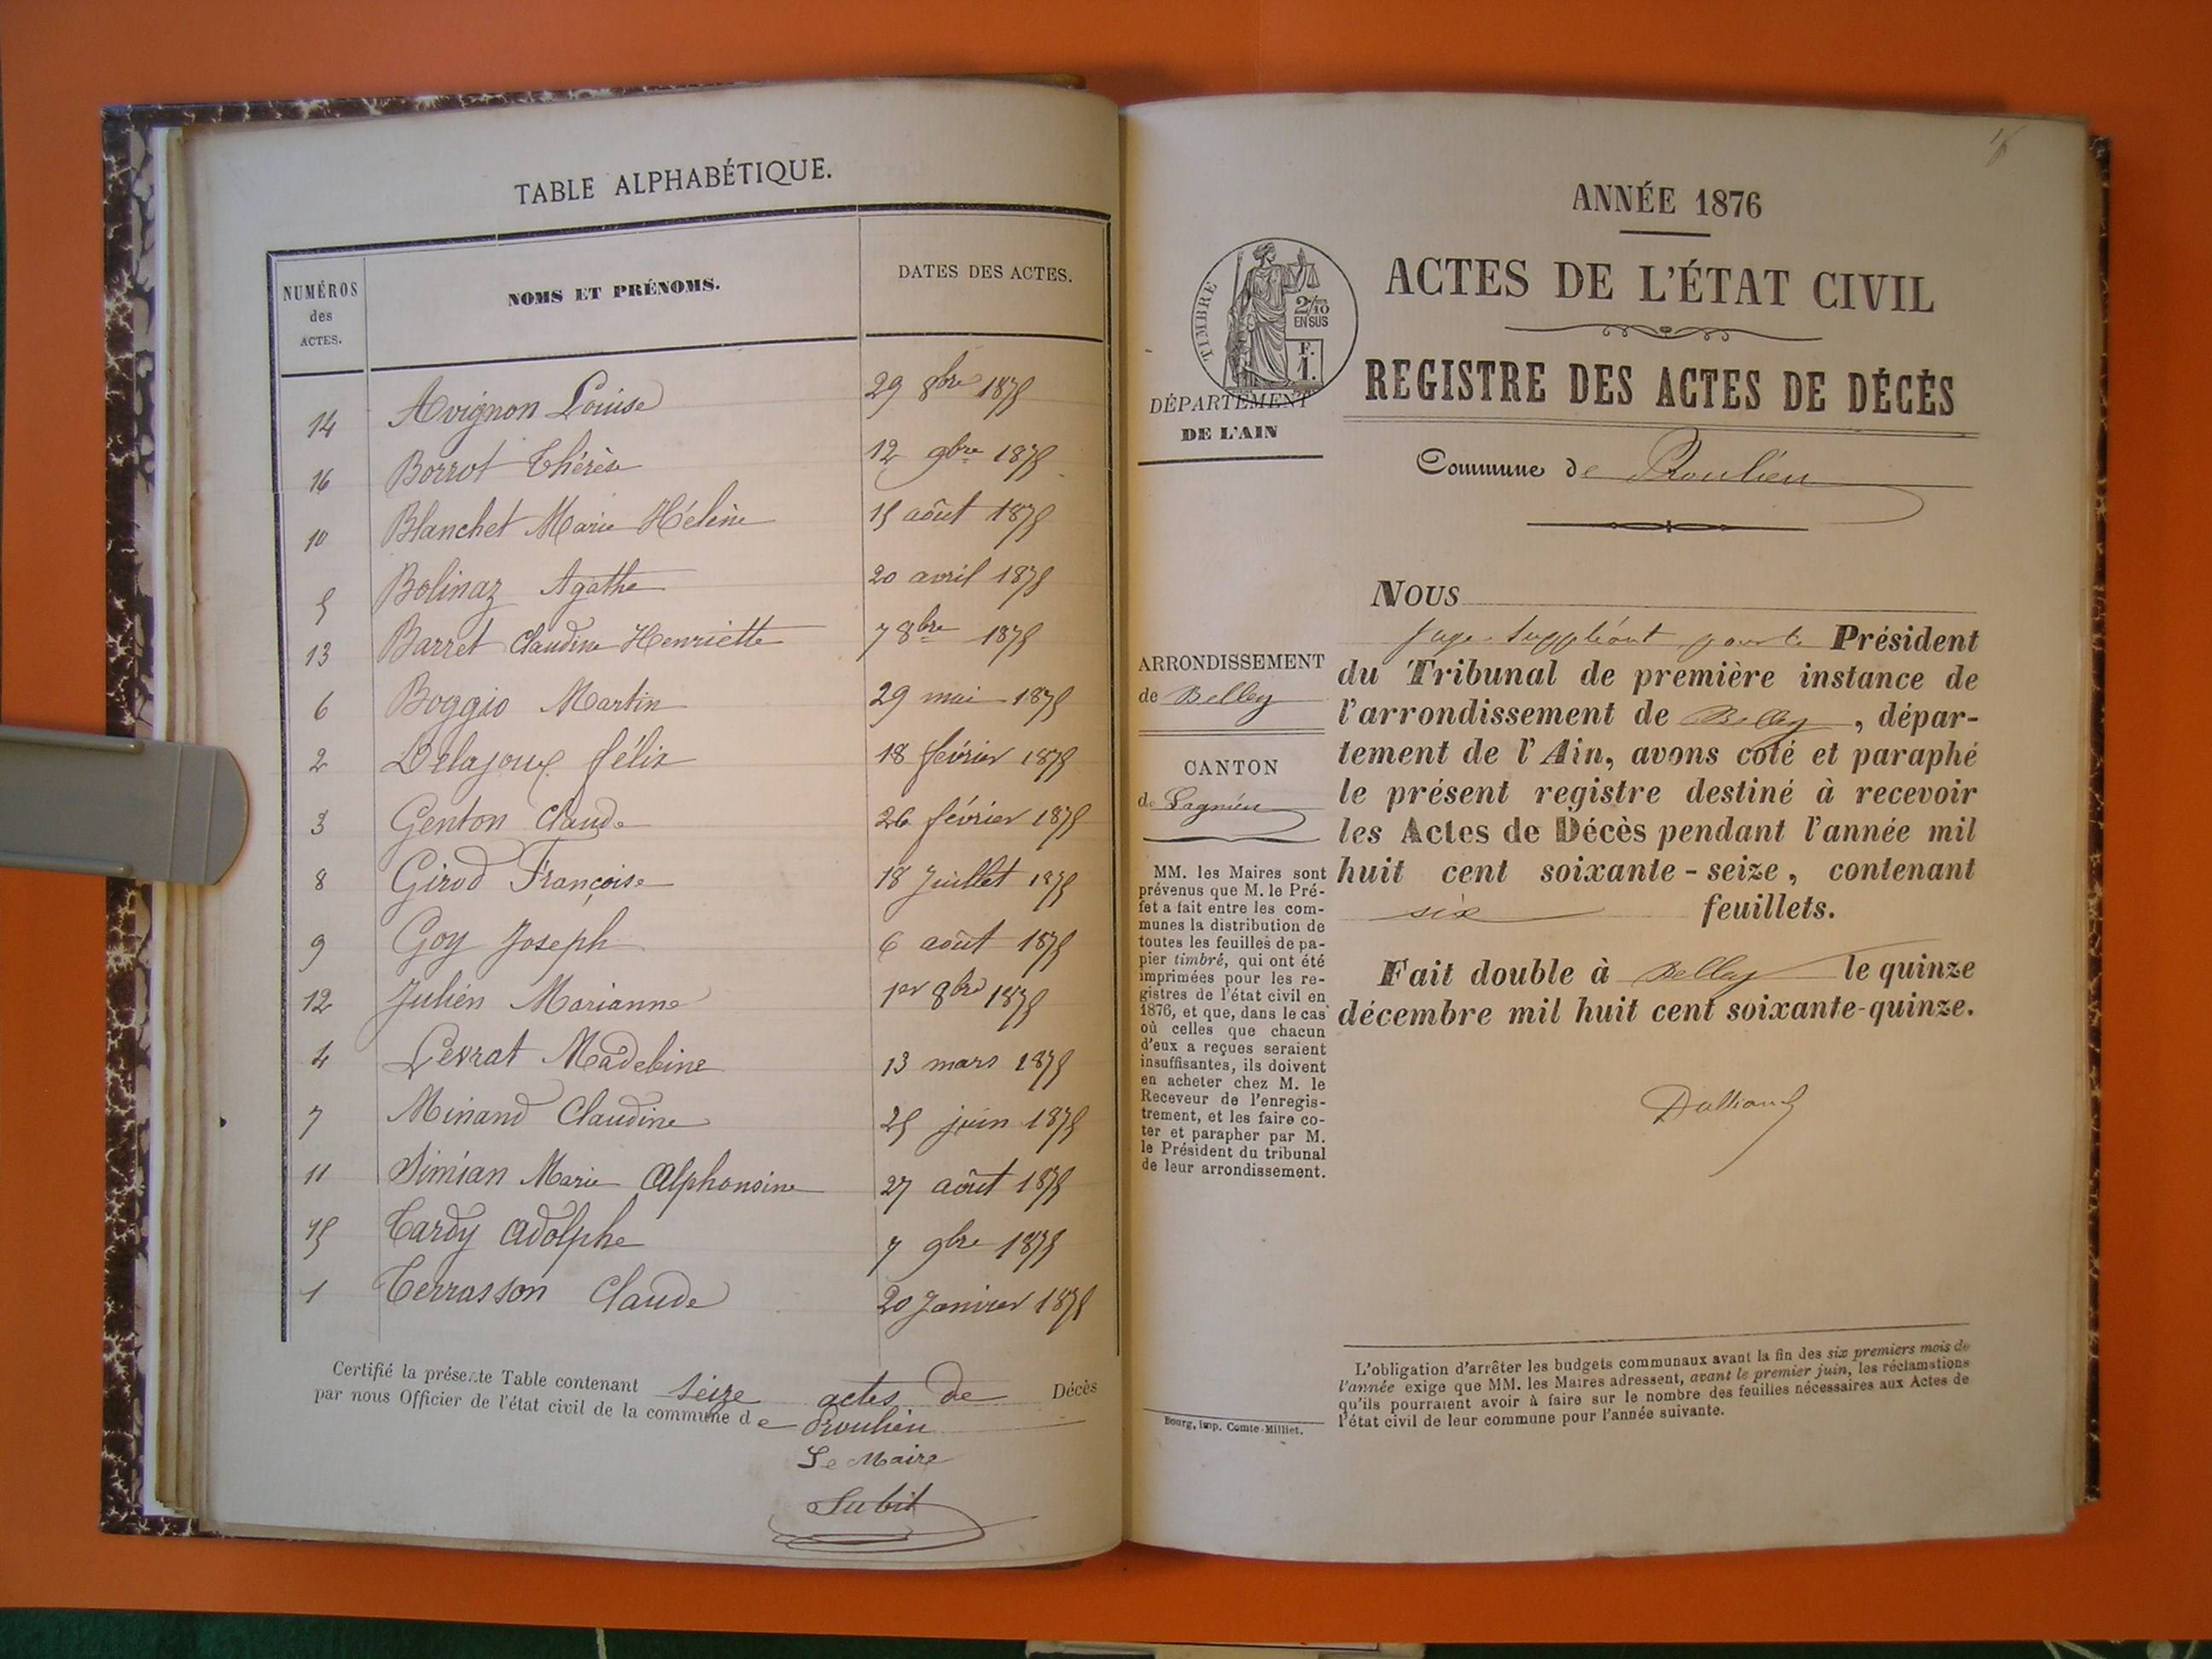 TABLE ALPHABÉTIQUE.
NUMÉROS des ACTES. NOMS ET PRÉNOMS. DATES DES ACTES.
14 Avignon Louise 29 8bre 1875
16 Borrot Thérèse 12 9bre 1875
10 Blanchet Marie Hélène 15 août 1875
5 Bolinaz Agathe 20 avril 1875
13 Barret Claudine Henriette 7 8bre 1875
6 Boggio Martin 29 mai 1875
2 Delajoux félix 18 février 1875
3 Genton Claude 26 février 1875
8 Girod Françoise 18 Juillet 1875
9 Goy Joseph 6 août 1875
12 Julien Marianne 1er 8bre 1875
4 Levrat Madeleine 13 mars 1875
7 Minand Claudine 25 juin 1875
11 Simian Marie Alphonsine 27 août 1875
15 Tardy adolphe 7 9bre 1875
1 Terrasson Claude 20 Janvier 1875
Certifié la présente Table contenant seize actes de Décès
par nous Officier de l'état civil de la commune de Proulieu
Le Maire
Subit
ANNÉE 1876
ACTES DE L'ÉTAT CIVIL
REGISTRE DES ACTES DE DÉCÈS
TIMBRE
2/10
EN SUS
F.
1.
DÉPARTEMENT
DE L'AIN
Commune de Proulieu
ARRONDISSEMENT
de Belley
CANTON
de Lagnieu
MM. les Maires sont
prévenus que M. le Pré-
fet a fait entre les com-
munes la distribution de
toutes les feuilles de pa-
pier timbré, qui ont été
imprimées pour les re-
gistres de l'état civil en
1876, et que, dans le cas
où celles que chacun
d'eux a reçues seraient
insuffisantes, ils doivent
en acheter chez M. le
Receveur de l'enregis-
trement, et les faire co-
ter et parapher par M.
le Président du tribunal
de leur arrondissement.
Bourg, imp. Comte-Milliet.
NOUS
Juge suppléant pour le Président
du Tribunal de première instance de
l'arrondissement de Belley, dépar-
tement de l'Ain, avons coté et paraphé
le présent registre destiné à recevoir
les Actes de Décès pendant l'année mil
huit cent soixante-seize, contenant
six feuillets.
Fait double à Belley le quinze
décembre mil huit cent soixante-quinze.
L'obligation d'arrêter les budgets communaux avant la fin des six premiers mois de
l'année exige que MM. les Maires adressent, avant le premier juin, les réclamations
qu'ils pourraient avoir à faire sur le nombre des feuilles nécessaires aux Actes de
l'état civil de leur commune pour l'année suivante.